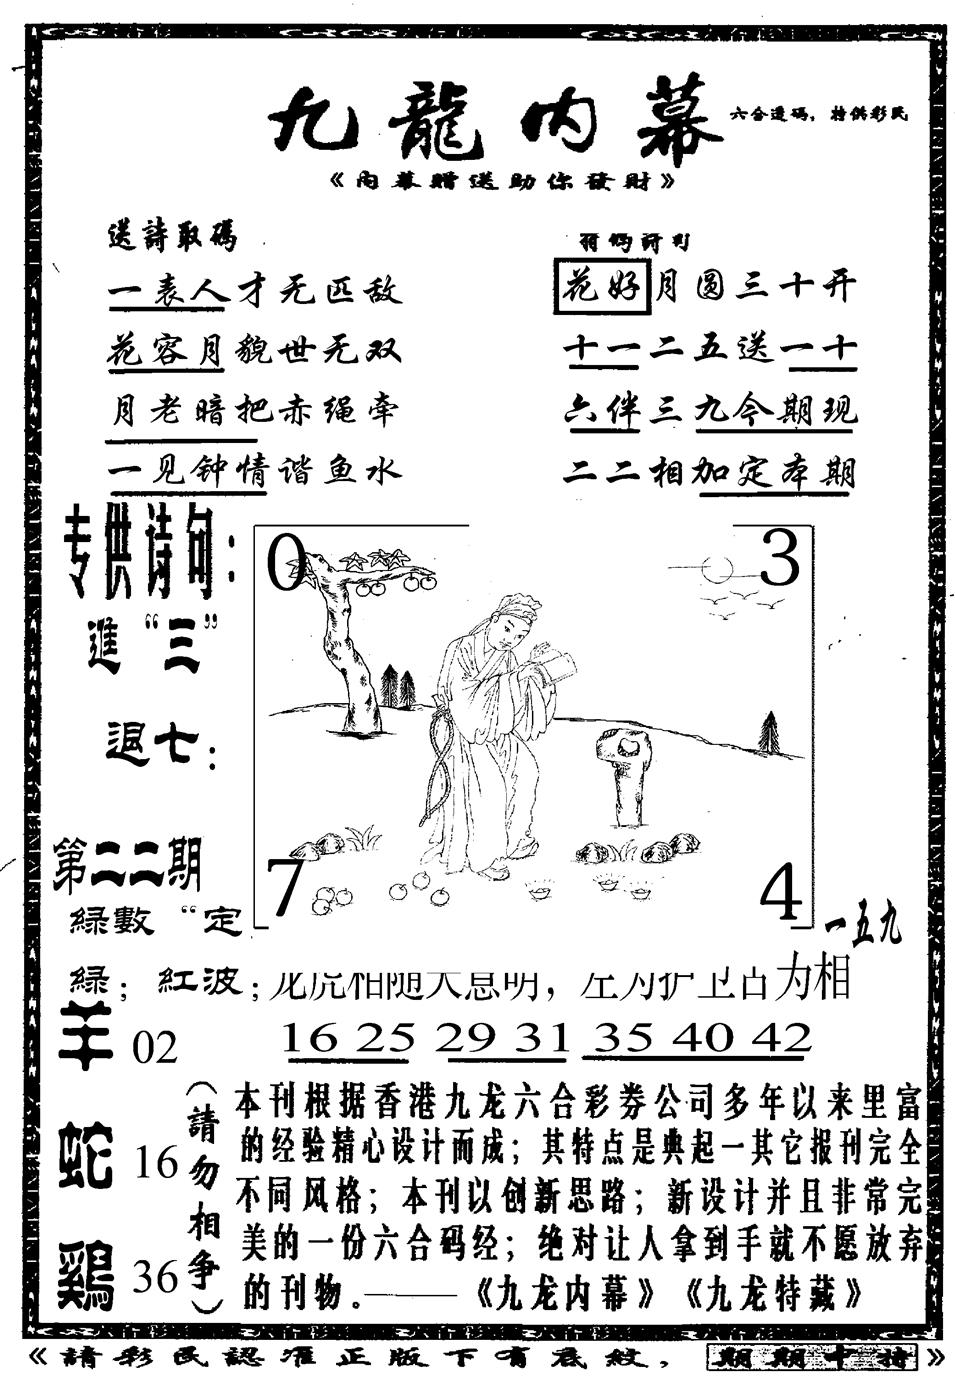 九龍内幕
六合透碼，特供彩民
《内幕贈送助你發財》
送詩取碼
一表人才无匹敌
花容月貌世无双
月老暗把赤绳牵
一见钟情谐鱼水
花好月圆三十开
十一二五送一十
六伴三九今期现
二二相加定本期
专供诗句：
進“三”
退七：
第二二期
0
3
7
4
一五九
緑數“定
緑；紅波；龙虎相随大意明，左为护卫右为相
16 25 29 31 35 40 42
羊 02
蛇 16
鷄 36
（請勿相争）
本刊根据香港九龙六合彩券公司多年以来里富
的经验精心设计而成；其特点是典起一其它报刊完全
不同风格；本刊以创新思路；新设计并且非常完
美的一份六合码经；绝对让人拿到手就不愿放弃
的刊物。——《九龙内幕》《九龙特藏》
《請彩民認准正版下有底紋，期期中特》